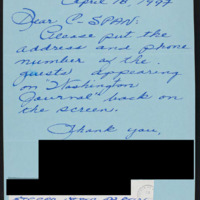 April 18, 1997
Dear C-SPAN:
Please put the
address and phone
number of the
guests appearing
on "Washington
Journal" back on
the screen.
Thank you,